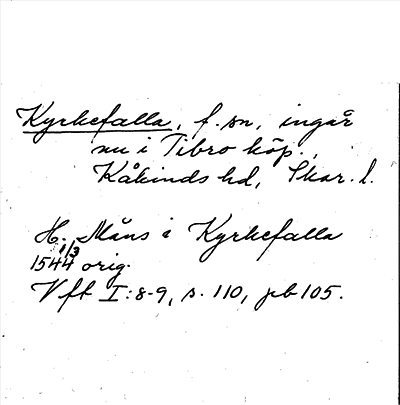 Kyrkefalla, f. sn, ingår
nu i Tibro köp.,
Kåkinds hd, Skar. l.
H. Måns i Kyrkefalla
1544 1/3 orig.
Vft I:8-9, s. 110, pb 105.